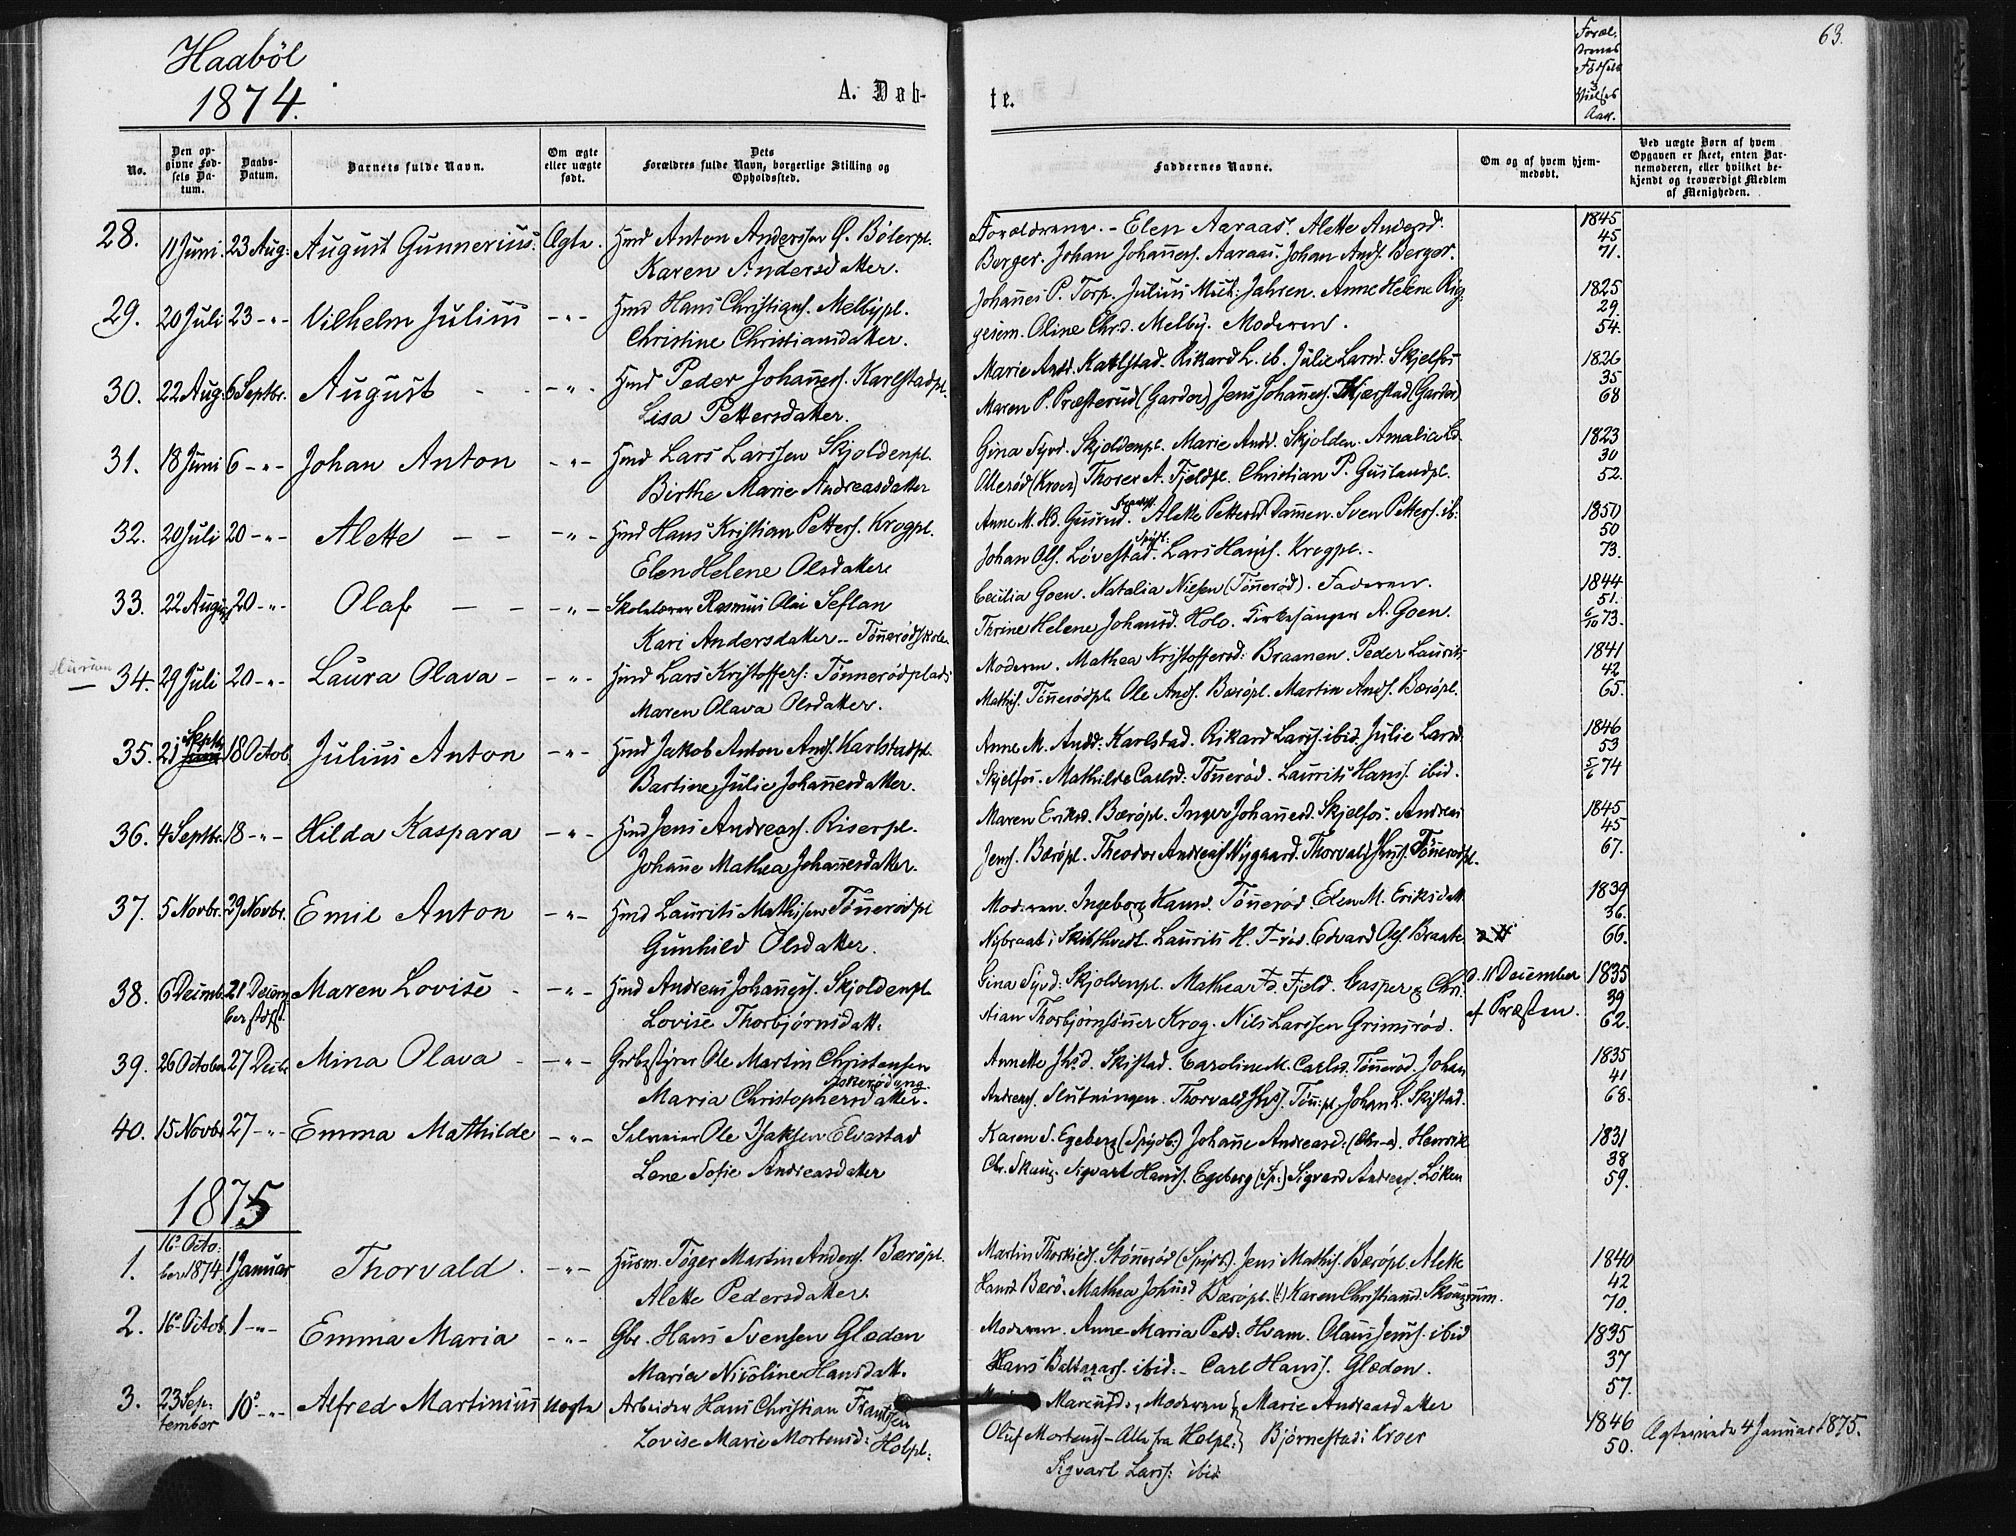 Haabøl
1874.
A. Døb-
te.
Foræl,
drenes
Aar.
63.
No.
Den op-
givne Fød-
sels Da-
tum.
Daabs-
Datum.
Barnets fulde Navn.
Om ægte
eller uægte
født.
Dets
Forældres fulde Navn, borgerlige Stilling og
Opholdssted.
Faddernes Navne.
Om og af hvem hjem-
medøbt.
Ved uægte Børn af hvem
Opgaven er skeet, enten Bar-
nemoderen, eller hvilket be-
kjendt og troværdigt Medlem
af Menigheden.
28. 11 Juni 23 Aug: August Gunnerius. Ægte. Hmd Anton Anderssen Ø. Bølerpl.
Karen Andersdatter.
Forældrene. - Elen Aaraas. Alette Andersd.
Berger. Johan Johannes. Aaraas. Johan Ands. Berger.
1845
45
71.
29. 20 Juli 23 -"- Vilhelm Julius -"- Hmd Hans Christians. Melbypl.
Christine Christiansdatter.
Johannes P. Torp. Julius Jahren. Anne Helene Rig-
gesem. Oline Chrd. Melby. Moderen.
1825
29.
54.
30. 22 Aug. 6 Septbr. August -"- Hmd Peder Johannes. Karlstadpl.
Lisa Pettersdatter.
Marie Andd. Karlstad. Rikard L. ib. Julie Larsd. Skjelfos
Maren P. Præsterud (Garder) Jens Johannes. Kjærstad (Garder)
1826
35
68
31. 18 Juni 6 -"- Johan Anton -"- Hmd Lars Larssen Skjoldenpl.
Birthe Marie Andreasdatter
Gina Syvd. Skjoldenpl. Marie Andd. Skjolden. Amalia
Ollerød (Kroer) Thorer A. Fjeldpl. Christian P. Guslandpl.
1823
30
52.
32. 20 Juli 20 -"- Alette - - -"- Hmd Hans Kristian Petters. Krogpl.
Elen Helene Olsdatter
Anne M. Gusrud. Alette Pettersd Dammen. Sven Petters. ib:
Johan Ols. Løvestad. Lars Hans. Krogpl. -
1850
50
73.
33. 22 August 20 -"- Olaf - - -"- Skolelærer Rasmus Olai Seflan
Kari Andersdatter - Tønnerødskole
Cecilia Goen. Natalia Nielsen (Tønnerød). Faderen.
Thrine Helene Johansd. Holo. Kirkesanger A. Goen.
1844
51.
6/10 73.
34. 29 Juli 20 -"- Laura Olava - -"- Hmd Lars Kristoffers: Tønnerødplads
Maren Olava Olsdatter.
Moderen. Mathea Kristoffersd: Braanen. Peder Laurits
Mathis. Tønnerødpl. Ole Ands. Bærøpl. Martin Ands. Bærøpl.
1841
42
65.
35. 21 Septb 18 Octob. Julius Anton -"- Hmd Jakob Anton Ands. Karlstadpl.
Bartine Julie Johannesdatter.
Anne M. Andd: Karlstad. Rikard Lars. ibid. Julie Larsd.
Skjelfos. Mathilde Carlsd: Tønnerød. Laurits Hans. ibid.
1846
53
5/6 74
36. 4 Septbr. 18 -"- Hilda Kaspara -"- Hmd Jens Andreas. Riserpl.
Johanne Mathea Johannesdatter.
Maren Eriksd. Bærøpl. Inger Johannesd. Skjelfos. Andreas
Jens. Bærøpl. Theodor Andreas Nygaard. Thorvald Tønnerødpl.
1845
45
67.
37. 5 Novbr. 29 Novbr. Emil Anton -"- Hmd Laurits Mathisen Tønnerødpl
Gunhild Olsdatter.
Moderen. Ingeborg Hansd. Tønnerød. Elen M. Eriksdatt
Nybraat i Skibthvedt. Laurits H. T-rød. Edvard Ols. Braate
1839
36.
66.
38. 6 Decemb. 21 December Maren Lovise - -"- Hmd Andreas Johannes. Skjoldenpl
Lovise Thorbjørnsdatt:
Gina Syvd: Skjoldenpl. Mathea Fjeld. Casper & Chri-
stian Thorbjørnsønner Krog. Nils Larssen Grimsrød.
d. 11 December
af Præsten.
1835
39
62.
39. 26 October 27 Decbr Mina Olava - -"- Grbestyrer Ole Martin Christensen
Askerødeng.
Maria Christophersdatter.
Annette Skistad. Caroline M. Carlsd. Tønnerød. Johan
Andreas. Slutningen. Thorvald Tøn:pl. Johan L. Skistad.
1835
41
68.
40. 15 Novbr 27 -"- Emma Mathilde -"- Selveier Ole Isaksen Elvestad
Lene Sofie Andreasdatter
Karen S. Egeberg (Spydb.) Johanne Andreasd: Henrik
Chr. Sigvart Hans. Egeberg (Sp:) Sigvard Andreas. Løken
1831
38
59.
1875
1. 16de Octo-
ber 1874 1 Januar Thorvald. -"- Husm. Tøger Martin Anders. Bærøpl.
Alette Pedersdatter.
Martin Stønnerød (Spydb.). Jens Mathis. Bærøpl. Alette
Hansd Bærø. Mathea Johansd. Bærøpl. Karen Christiansd.
1840
42
70.
2. 16de Octob. 1 -"- Emma Maria -"- Gbr. Hans Svensen Glæden
Maria Nicoline Hansdatt.
Moderen. Anne Maria Pedd: Hvam. Olaus Jens. ibid
Hans Baltazars. ibid. - Carl Hans. Glæden.
1835
37
57.
3. 23 Sep-
tember 10de -"- Alfred Martinius Uægte Arbeider Hans Christian Frantzen
Lovise Marie Mortensd: Holpl:
Moderen } Marie Andreasdatter
Oluf Mortens - Alle fra Holpl: } Bjørnestad i Kroer
Sigvart Lars: ibid
1846
50.
Ægteviede 4 Januar 1875.